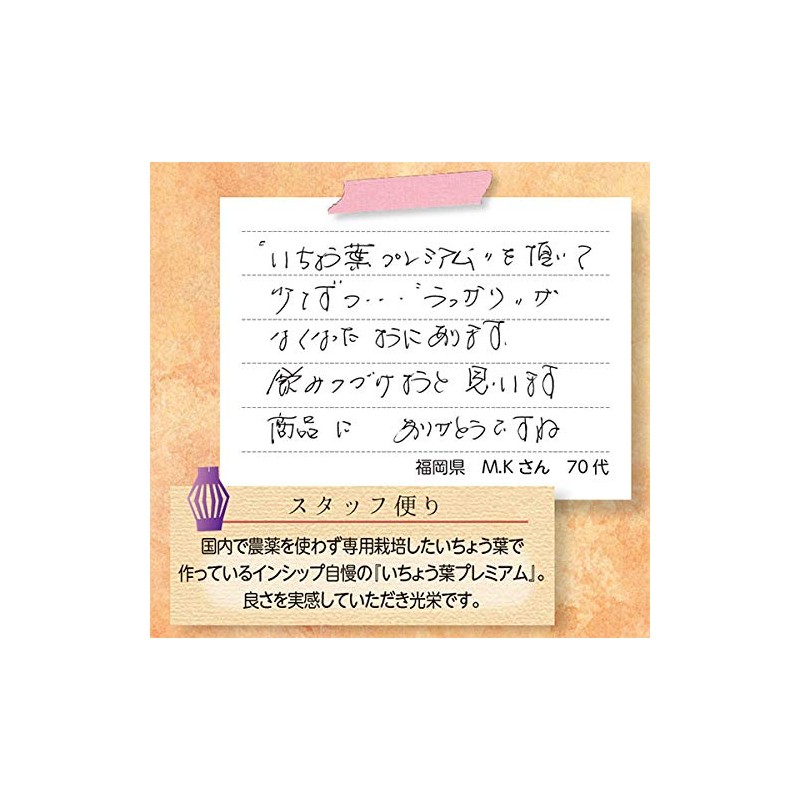 “いちよう葉プレミアム”を頂いて
少しずつ...“うっかり”が
なくなったようにあります.
飲みつづけようと思います
商品に ありがとうですね
福岡県 M.Kさん 70代
スタッフ便り
国内で農薬を使わず専用栽培したいちょう葉で
作っているインシップ自慢の『いちょう葉プレミアム』。
良さを実感していただき光栄です。